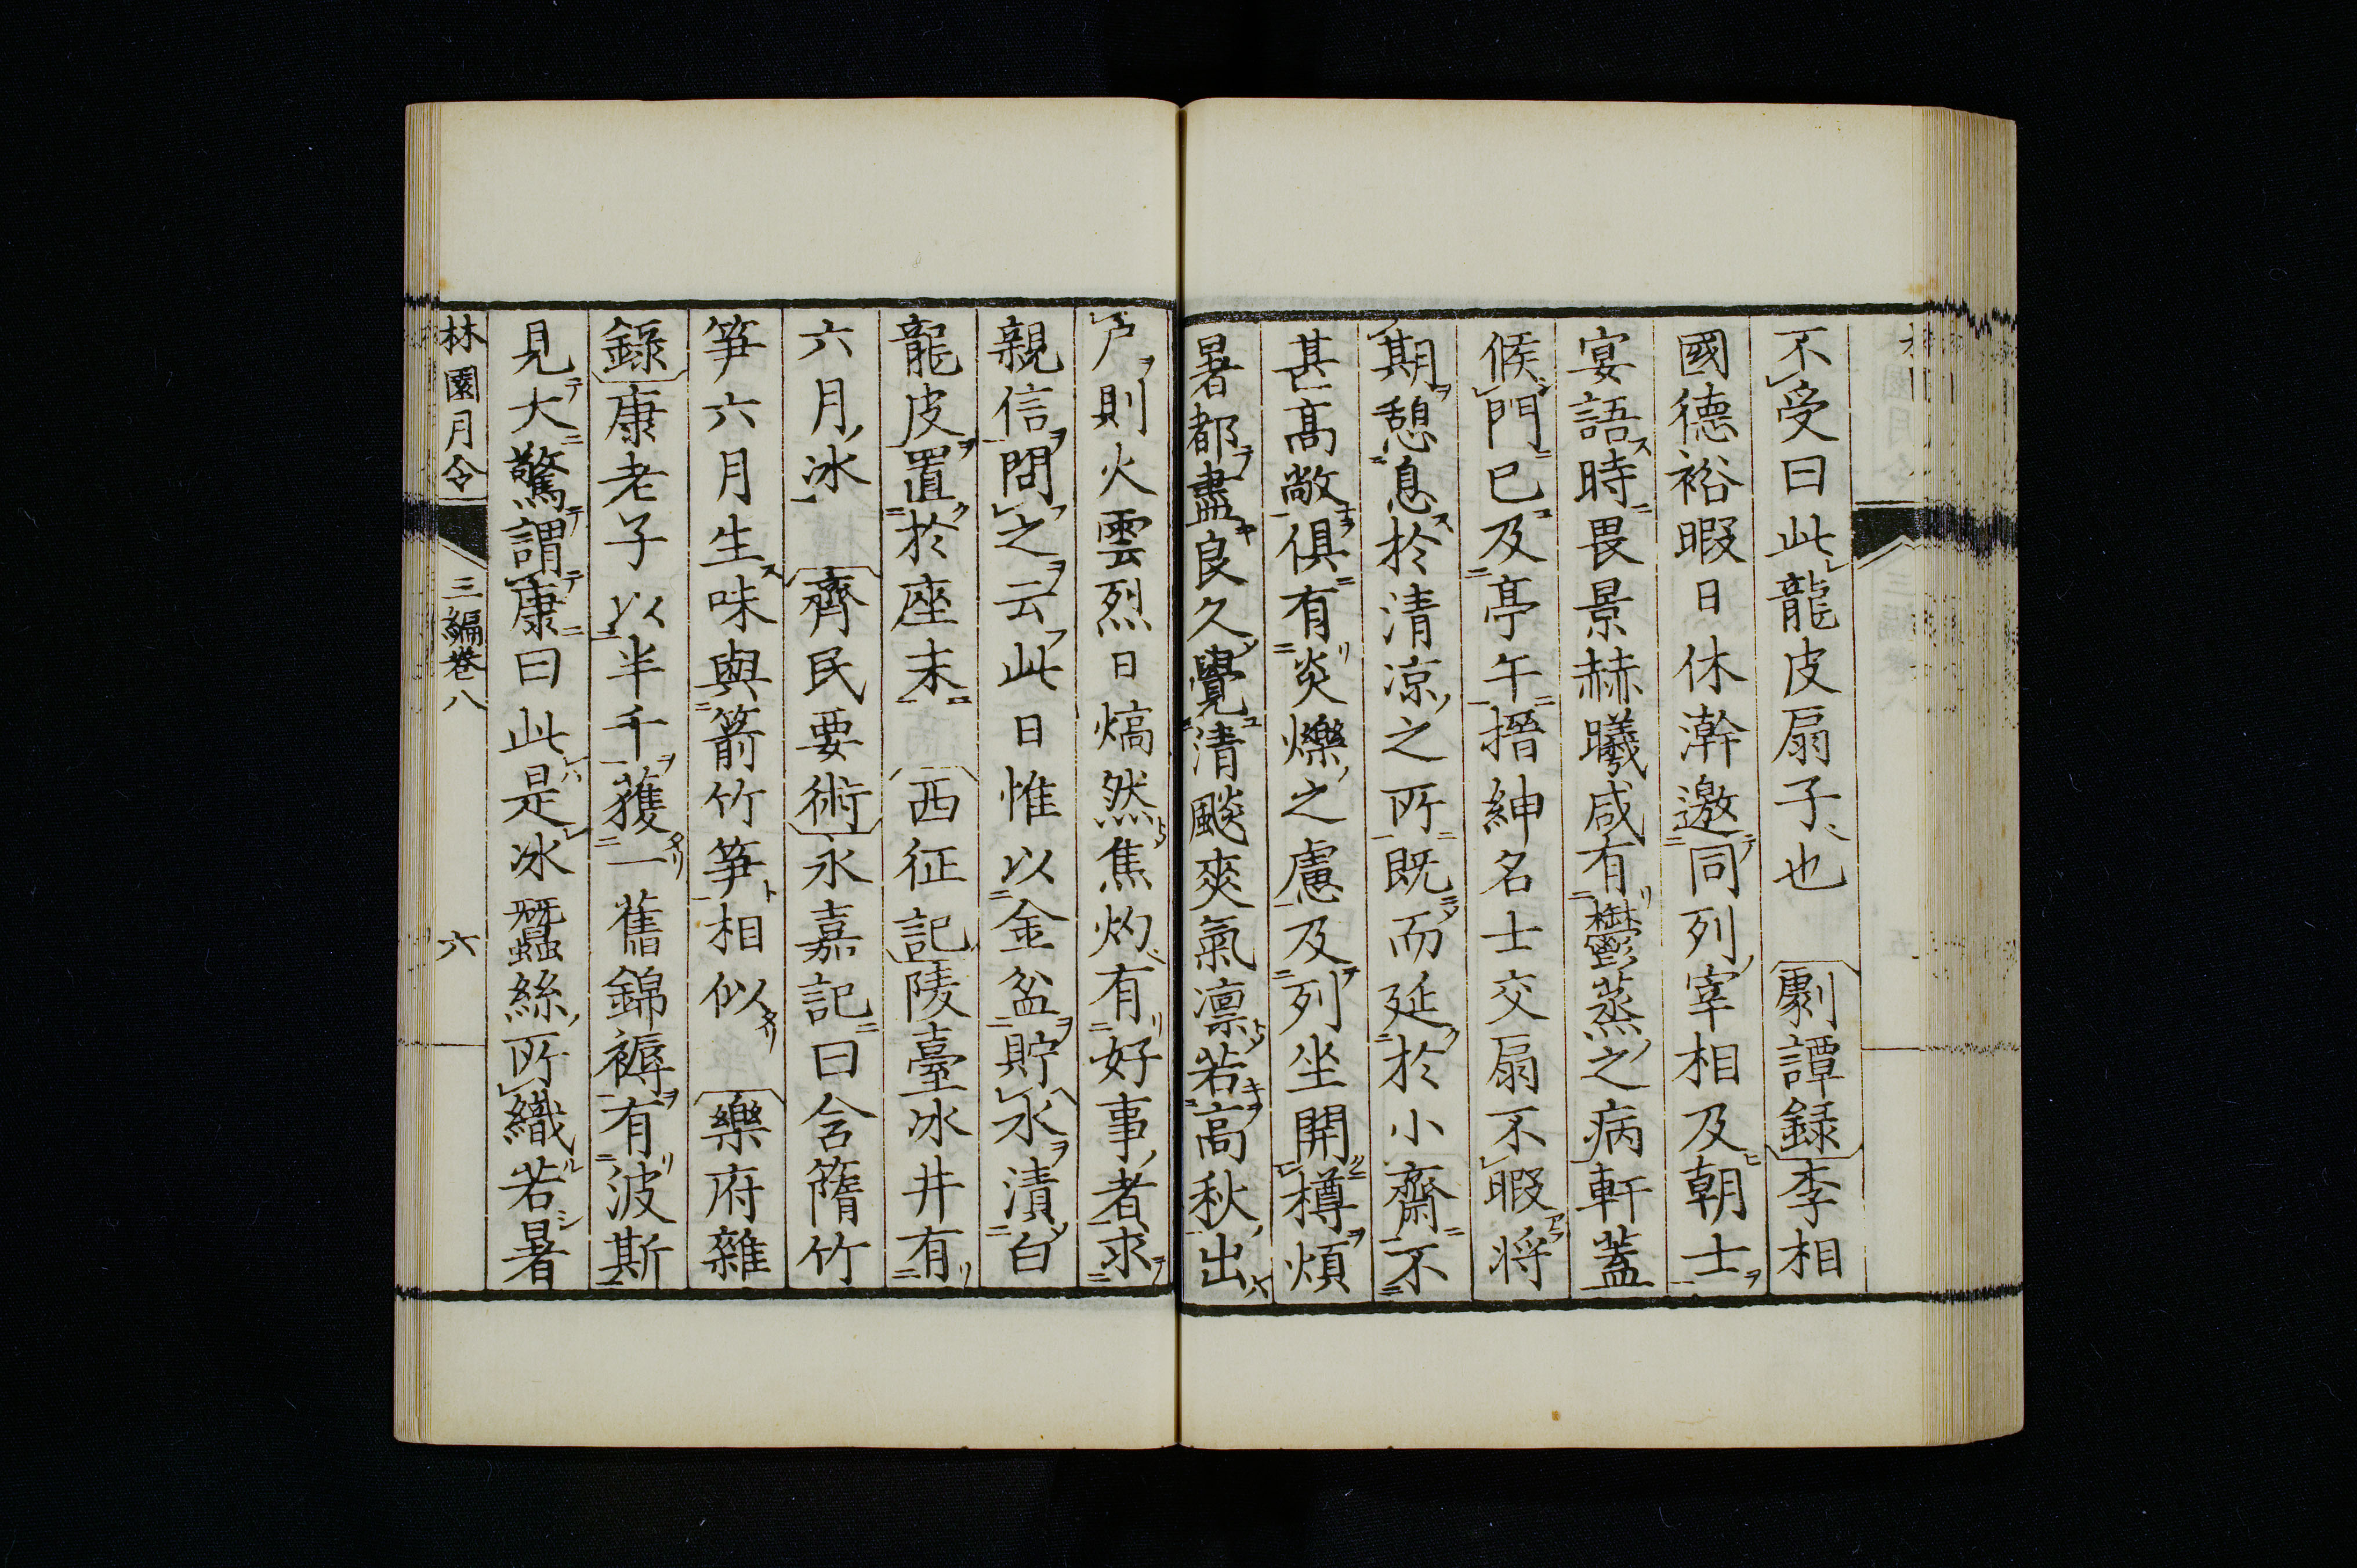 不受曰此龍皮扇子也　劇譚録李相
國德裕暇日休澣邀同列宰相及朝士
宴語時畏景赫曦咸有鬱蒸之病軒蓋
候門已及亭午搢紳名士交扇不暇将
期憩息於清凉之所既而延於小齋不
甚高敞俱有炎爍之慮及列坐開樽煩
暑都盡良久覺清飈爽氣凛若高秋出
戸則火雲烈日熇然焦灼有好事者求
親信問之云此日惟以金盆貯水漬白
龍皮置於座末　西征記陵臺冰井有
六月冰　齊民要術永嘉記曰含篖竹
笋六月生味與箭竹笋相似　樂府雜
錄康老子以半千獲一舊錦褥有波斯
見大驚謂康曰此是冰蠶絲所織若暑
林園月令　三編卷八　六